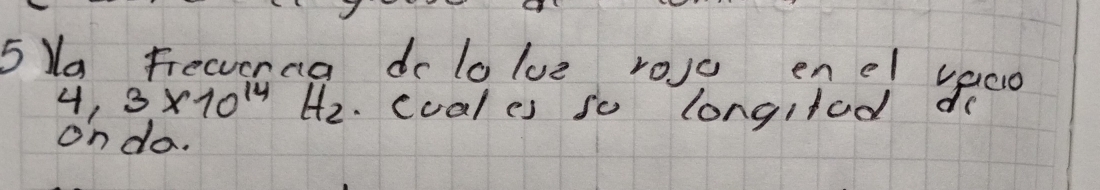 5 Ya Frecuencia de la luz roja en el vacio
4,3x10¹⁴ Hz. cual es su longitud de
onda.